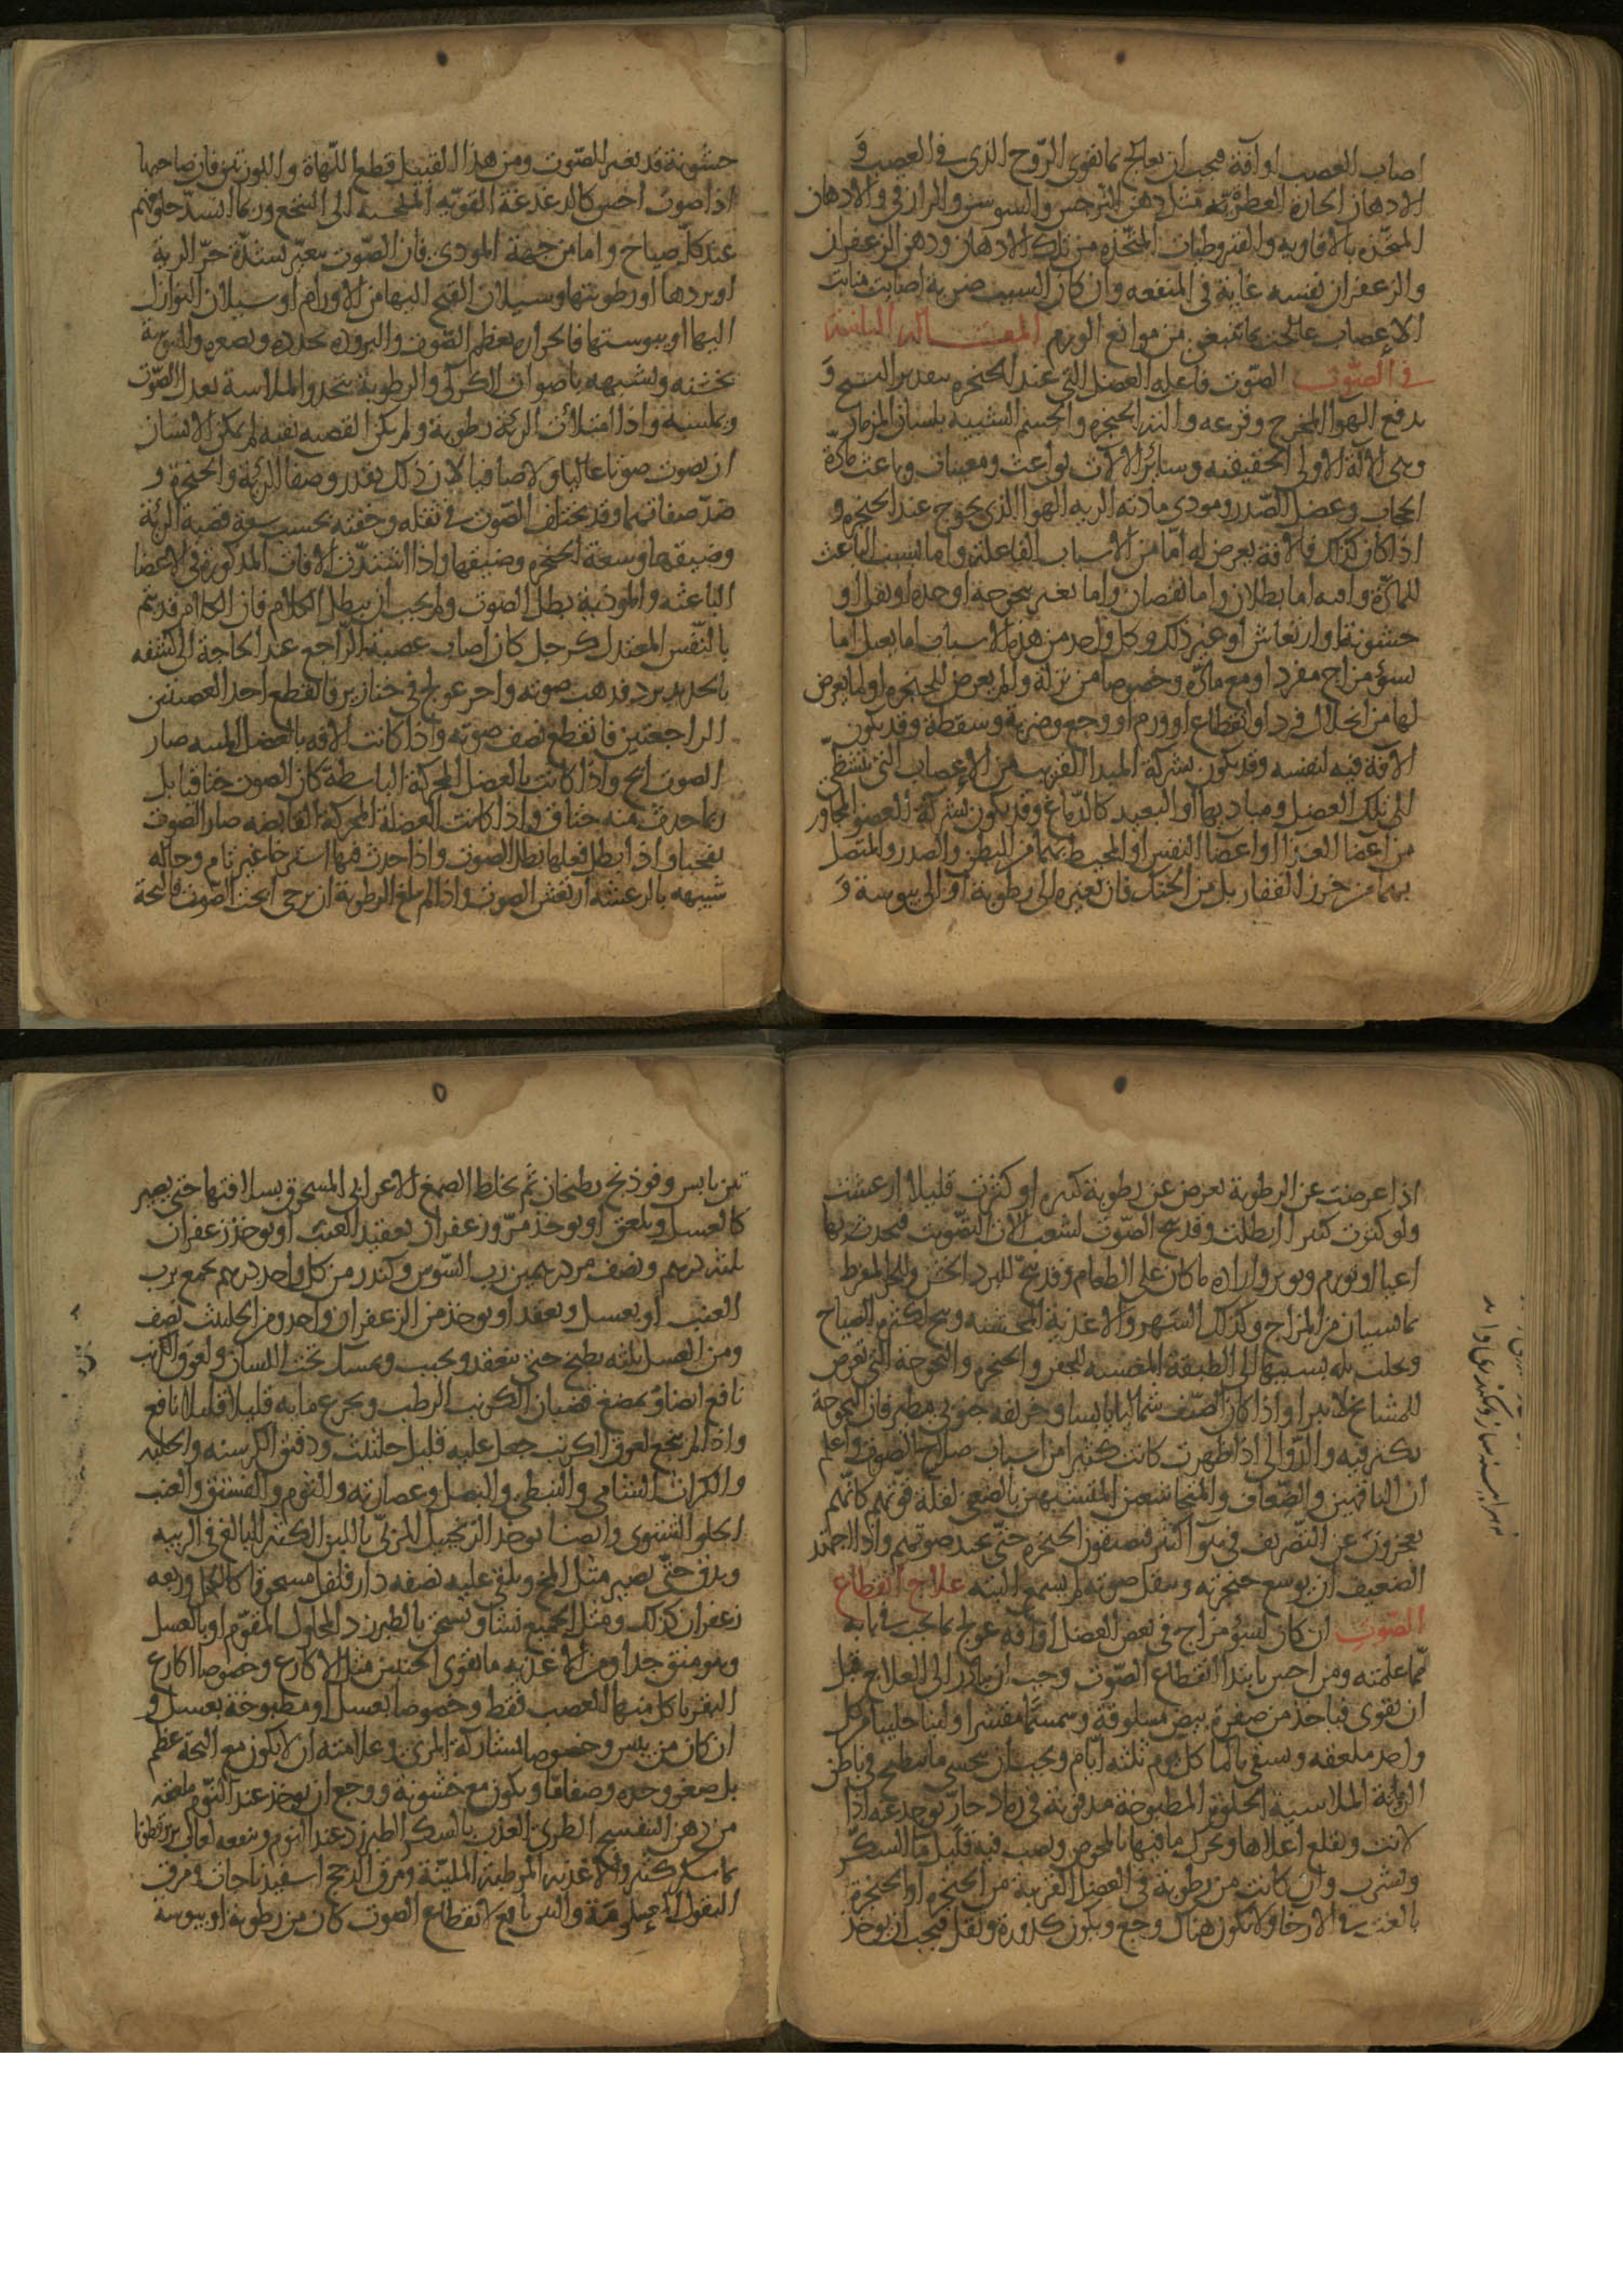 اصاب العصب او آفة فيجب ان يعالج بما يقوى الرّوح الذى فى العصب وَ
الادهان الحارة العطرية مثل دهن النرجس والسوسن والرازقى والادهان
المتخذه بالافاويه والقيروطيات المتخذه من تلك الادهان ودهن الزعفران
والزعفران نفسه غاية فى المنفعه وان كان السبب ضربة اصابت منابت
الاعصاب عالجت بما ينبغى من موانع الورم المقاله الثانية
فى الصّوت الصّوت فاعله العضل التى عند الحنجره بتقدير الفتح وَ
بدفع الهوا المخرج وقرعه والته الحنجره والجسم الشبيه بلسان المزمار
وهى الآلة الاولى الحقيقيه وسائر الآلات بواعث ومعينات وباعث مادته
الحجاب وعضل الصّدر ومودى مادته الريه الهوا الذى يخرج عند الحنجره و
اذا كان كذلك فالآفة يعرض له امّا من الاسباب الفاعله واما بسبب الباعث
للمادّة وافته اما بطلان واما نقصان واما تغير ببحوحة او حده او ثقل او
خشونة او ارتعاش او غير ذلك وكل واحد من هذه الاسباب اما يعتل اما
لسؤ مزاج مفرد او مع مادّه وخصوصا من نزلة والم يعرض للحنجره او لما يعرض
لها من انحلال فرد او انقطاع او ورم او وجع وضربة وسقطة وقد يكون
الآفة فيه لنفسه وقد يكون بشركة المبدا القريب من الاعصاب التى تتشظّى
الى تلك العضل ومباديها او البعيد كالدّماغ وقد يكون بشركة العضو المجاور
من اعضا الغذا او اعضا النفس او المحيط بهما من البطن والصدر والمتصل
بهما من خرز الفقار بل من الحنك فان تغيره الى رطوبة او الى يبوسة وَ
خشونة قد تغير الصّوت ومن هذا القبيل قطع اللّهاة واللوزتين فان صاحبها
اذا صوت احس كالدغدغة القويه الملجيه الى التنحنح وربما انسدّ حلوقهم
عند كلّ صياح واما من جهة المودى فان الصّوت يتغيّر بشدّة حرّ الرية
او بردها او رطوبتها وسيلان القيح اليها من الاورام او سيلان النوازل
اليها او يبوستها فالحراره تعظم الصّوت والبروده تخدره وتصغره واليبوسة
تخشنه وتشبهه باصوات الكراكى والرطوبة تبحه والملاسة تعدل الصّوت
وتملسه واذا امتلأت الرئة رطوبة ولم يكن القصبه نقيه لم يمكن الانسان
ان يصوت صوتا عاليا ولا صافيا لان ذلك بقدر صفا الرئة والحنجرة و
ضدّ صفائهما وقد يختلف الصّوت فى ثقله وخفته بحسب سعة قصبة الرئة
وضيقها وسعة الحنجره وضيقها واذا اشتدّت الآفات المذكورة فى الاعضا
الباعثه والمودية بطل الصوت ولم يجب ان يبطل الكلام فان الكلام قد يتم
بالنّفس المعتدل كرجل كان اصاب عصبه الرّاجع عند الحاجة الى كشفه
بالحديد برد فذهب صوته واخر عولج فى خنازير فانقطع احد العصبتين
الراجعتين فانقطع نصف صوته واذا كانت الآفه بالعضل المثنيه صار
الصوت ابح واذا كانت بالعضل المحركة الباسطة كان الصوت خناقيا بل
ربما حدث منه خناق واذا كانت العضلة المحركة القابضه صار الصّوت
نفخيا واذا بطل فعلها بطل الصوت واذا حدث فيها استرخا غير تام وحاله
شبيهه بالرعشه ارتعش الصوت واذا لم تبلغ الرطوبة ان ترخى ابحت الصّوت فالبحة
اذا عرضت عن الرطوبة تعرض عن رطوبة كثيره او كثرت قليلا ارعشت
ولو كثرت كثيرا ابطلت وقد يبح الصّوت لتشعب آلات التّصويت فيحدث بها
اعيا او تورم وتوتر واراده ما كان على الطعام وقد يبح للبرد الخشن وللحر المفرط
بما ييبسان من المزاج وكذلك السّهر والاغذية المخشنه ويبح لكثرة الصياح
وتجلب بله بسببها الى الطبقه المغشيه للحنجره والبحوحة التى تعرض
للمشايخ لا تبرا واذا كان الصّيف شماليا يابسا وخريفه جنوبى مطير فان البحوحة
تكثر فيه والدّوالى اذا ظهرت كانت كثيرا من اسباب صلاح الصّوت واعلم
ان الناقهين والضّعاف والمتخاشعين المتشبهين بالضعفى لقلة قوتهم كانّهم
يعجزون عن التصّريف فى هوآ كثير فيضيقون الحنجره حتى يحتد صوتهم واذا اجتهد
الضعيف ان يوسع حنجرته ويثقل صوته لم يسمع البته علاج انقطاع
الصّوت ان كان لسؤ مزاج فى بعض العضل او آفة عولج بما يجب فى بابه
ممّا علمته ومن احس بابتدا انقطاع الصّوت وجب ان يبادر الى العلاج قبل
ان يقوى فياخذ من صفرة بيض مسلوقة وسمسمًا مقشرا ولبنا حليبا من كل
واحد ملعقه ويسقى بالما كل يوم ثلثه ايّام ويجب ان يتحسى ما يطبخ فى باطن
الرمانة الملاسية الحلوة المطبوخة مدفونة فى رماد حارّ تؤخذ عنه اذا
لانت ويقلع اعلاها ويحرك ما فيها بالمخوص ويصب فيه قليل ما السكّر
ويشرب وان كانت من رطوبة فى العضل القريبة من الحنجره او الحنجرة
بالغت فى الارخا ولا يكون هناك وجع ويكون كدورة وثقل فيجب ان يؤخذ
تين يابس وفوذنج يطبخان ثم يخلط الصمغ الاعرابى المسحوق بسلافتها حتى يصير
كالعسل ويلعق او يوخذ مرّ وزعفران بعقيد العنب او يوخذ زعفران
ثلثه دراهم ونصف مر درهمين رب السّوس وكندر من كل واحد درهم يجمع برب
العنب او بعسل ويعقد او يوخذ من الزعفران واحد ومن الحلتيت نصف
ومن العسل ثلثه يطبخ حتى ينعقد ويحبب ويمسك تحت اللسان ولعوق الكرنب
نافع ايضا ويمضغ قضبان الكرنب الرطب ويجرع مايه قليلا قليلا نافع
واذا لم ينجع لعوق الكرنب جعل عليه قليل حلتيت ودقيق الكرسنه والحلبه
والكراث الشامى والنبطى والبصل وعصارته والثوم والفستق والعنب
الحلو الشتوى وايضا يوخذ الزنجبيل المربّى بالليّن الكثير البالغ فى التربيه
ويدق حتّى يصير مثل المخ ويلقى عليه نصفه دارفلفل مسحوقا كالكحل وربعه
زعفران كذلك ومثل الجميع نشا ويسحق بالطبرزد المحلول المقوّم او بالعسل
وهو منق جدا ومن الاغذيه ما يقوى الحنجرة مثل الاكارع وخصوصا اكارع
البقر ياكل منها العصب فقط وخصوصا بعسل او مطبوخة بعسل و
ان كان من يبس وخصوصا بمشاركة المرى وعلامته ان لا يكون مع البحة عظم
بل صغر وحده وصفا ما ويكون مع خشونة ووجع ان يوخذ عند النّوم ملعقه
من دهن البنفسج الطرى العذب بالسكر الطبرزد عند النوم وينفعه لعاب بزرقطونا
بما سكر كثير والاغذيه المرطبه المليّنة ومرق الدجج اسفيذباجات ومرق
البقول وما نافع لانقطاع الصوت كان من رطوبة او يبوسة